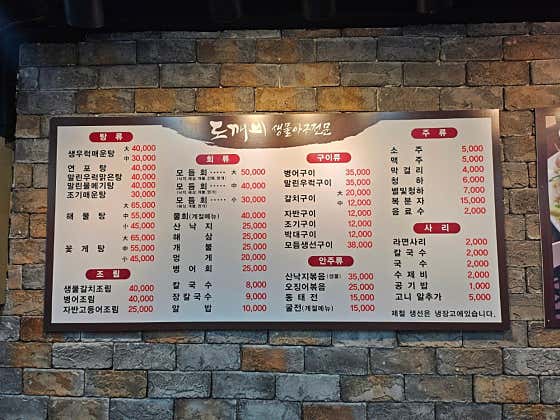 도깨비 생물아구전문
탕 류
생우럭매운탕 大 40,000
中 30,000
연 포 탕 40,000
말린우럭맑은탕 40,000
말린물메기탕 40,000
조기매운탕 大 40,000
中 30,000
해 물 탕 大 65,000
中 55,000
小 45,000
꽃 게 탕 大 65,000
中 55,000
小 45,000
조 림
생물갈치조림 40,000
병어조림 40,000
자반고등어조림 25,000
회 류
모 듬 회 ····· 大 50,000
모 듬 회 ····· 中 40,000
모 듬 회 ····· 小 30,000
물회(계절메뉴) 40,000
산 낙 지 25,000
해 삼 25,000
개 불 25,000
멍 게 20,000
병 어 회 40,000
칼 국 수 8,000
장 칼 국 수 9,000
알 밥 10,000
구이류
병어구이 35,000
말린우럭구이 35,000
갈치구이 大
中 12,000
자반구이 12,000
조기구이 12,000
박대구이 12,000
모듬생선구이 38,000
안주류
산낙지볶음(생물) 35,000
오징어볶음 25,000
동 태 전 15,000
굴전(계절메뉴) 15,000
주 류
소 주 5,000
맥 주 5,000
막 걸 리 4,000
청 하 6,000
별빛청하 7,000
복 분 자 15,000
음 료 수 2,000
사 리
라면사리 2,000
칼 국 수 2,000
국 수 2,000
수 제 비 2,000
공 기 밥 1,000
고니 알추가 5,000
제철 생선은 냉장고에있습니다.